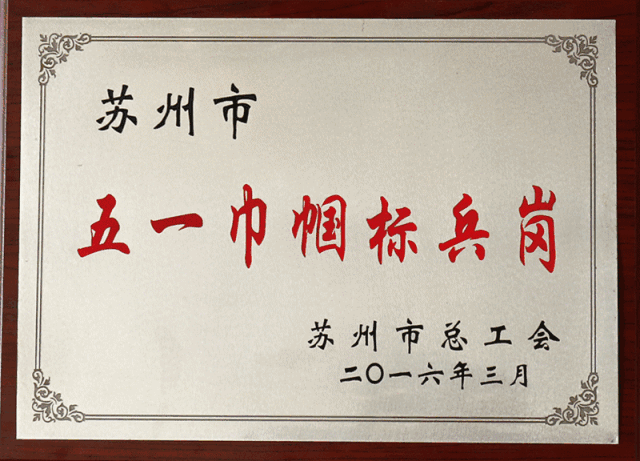 苏州市
五一巾帼标兵岗
苏州市总工会
二〇一六年三月